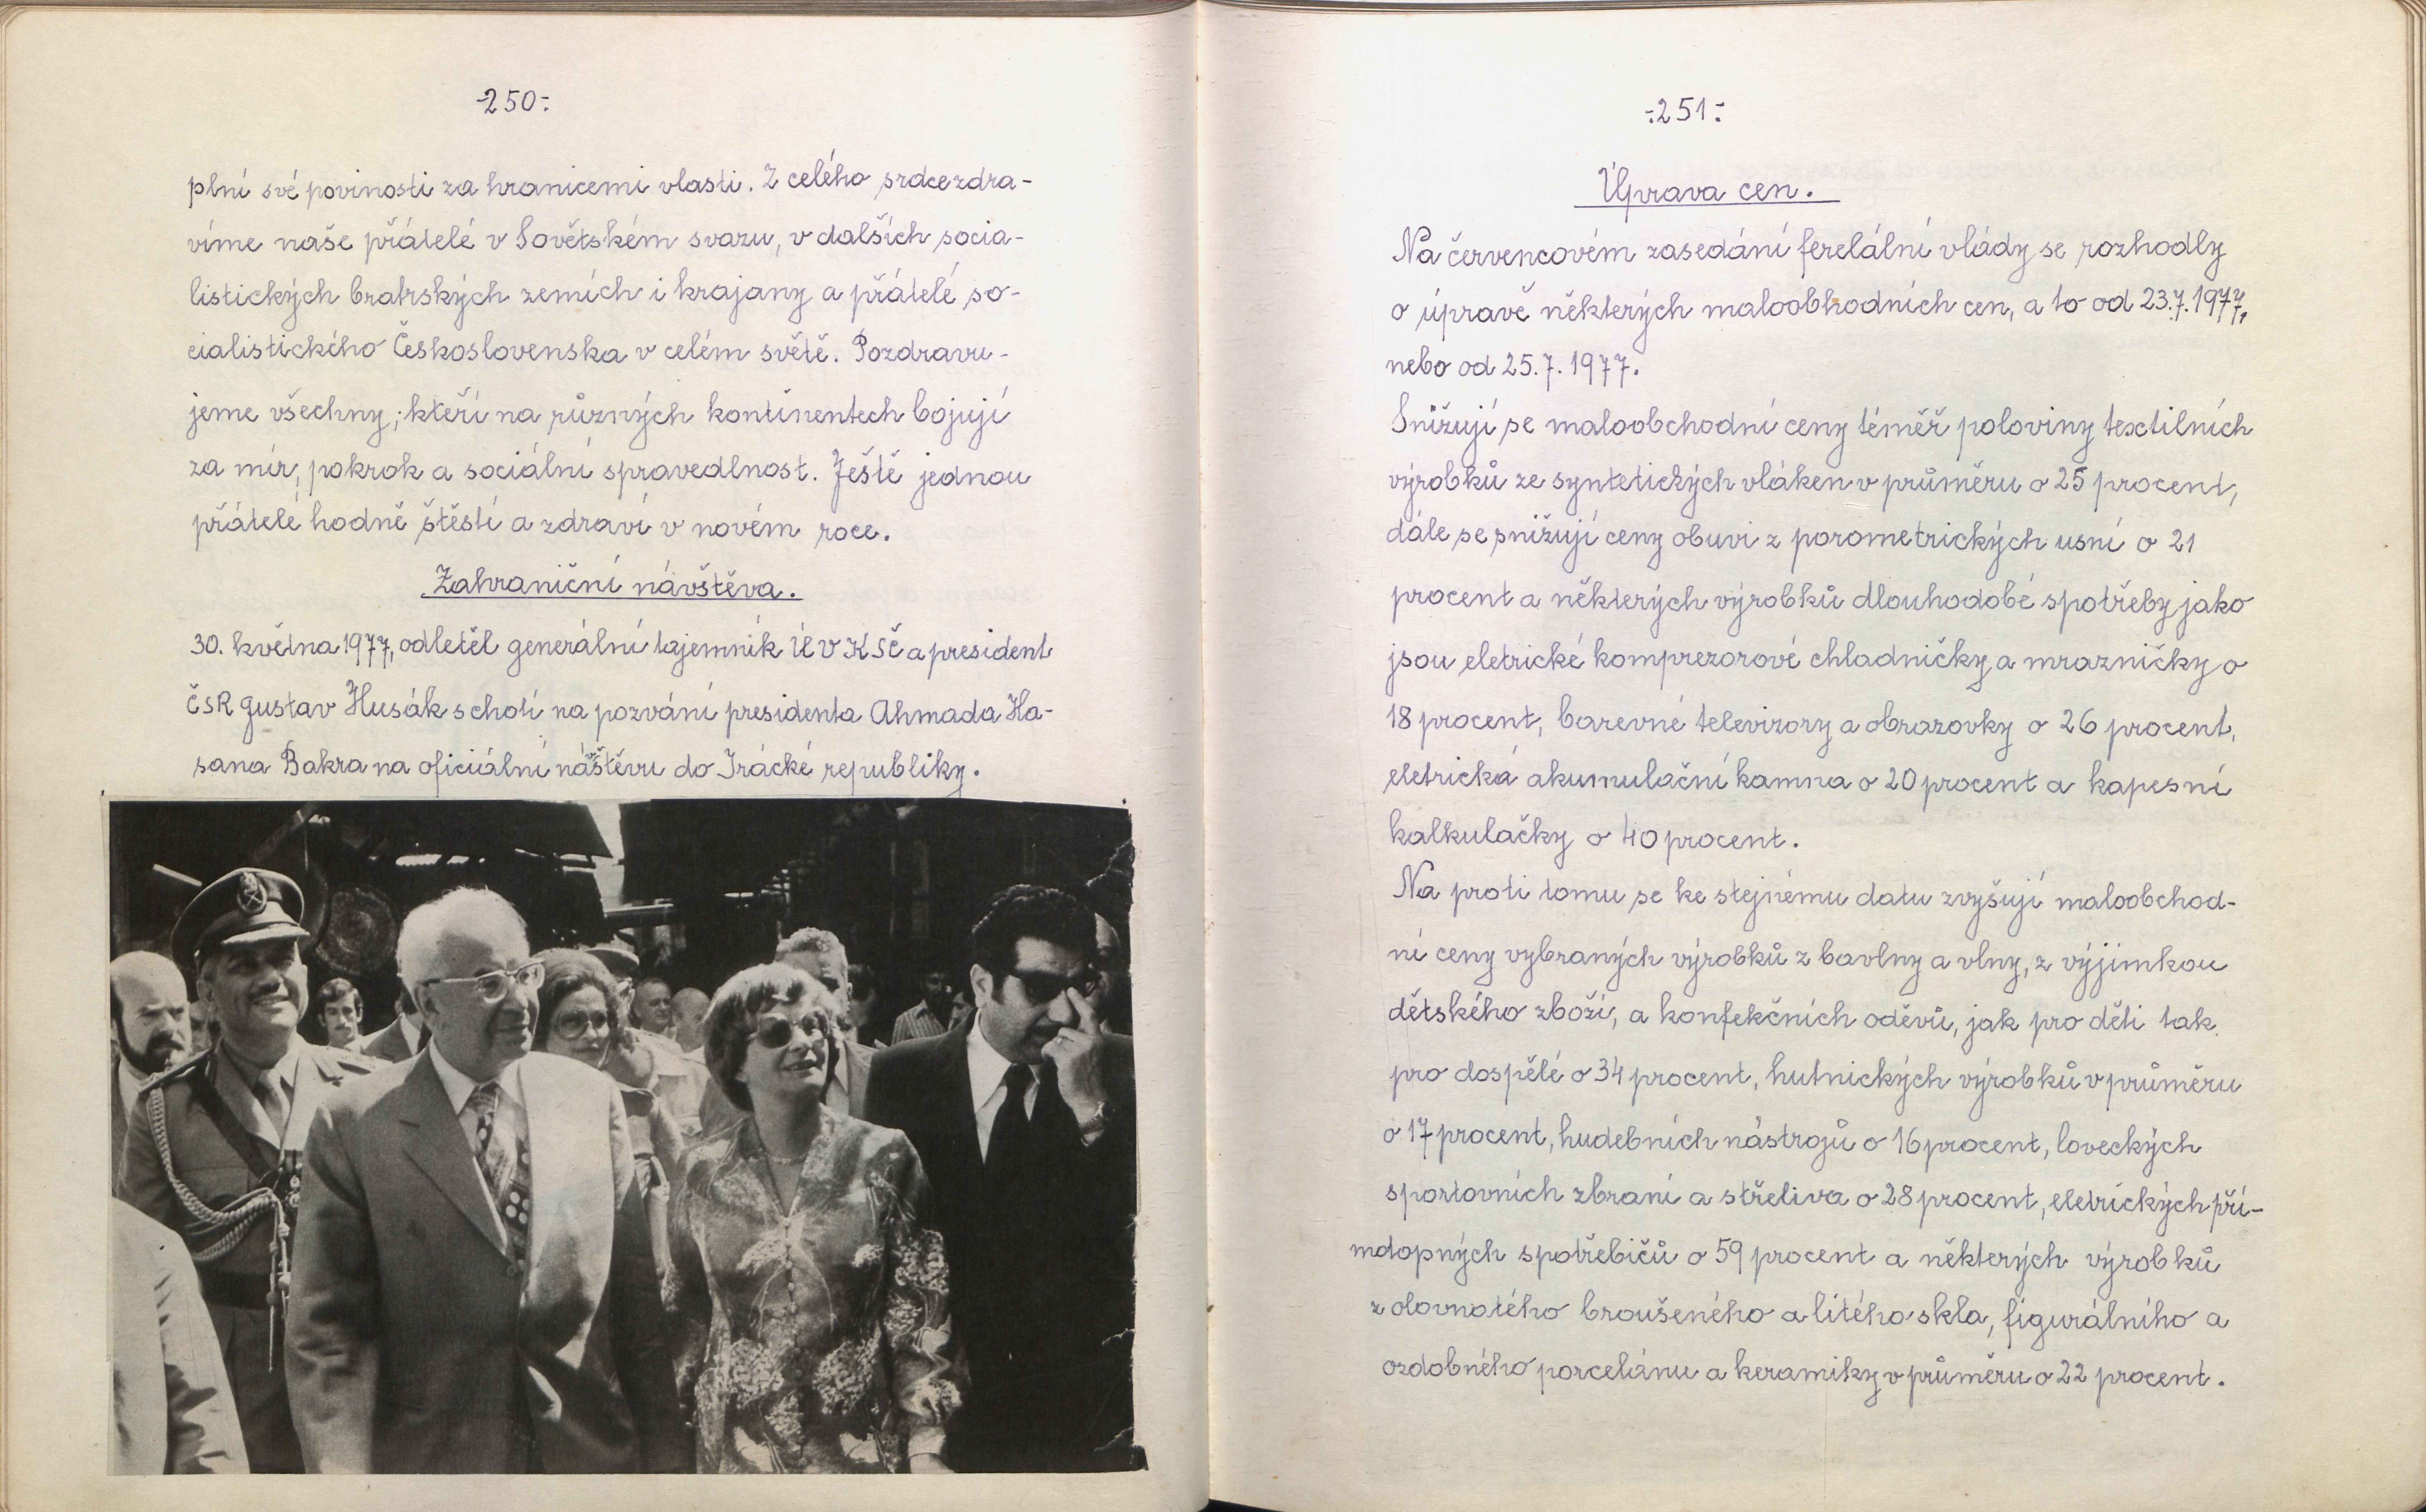 -250-
plní své povinosti za hranicemi vlasti. Z celého srdce zdra-
víme naše přátelé v Sovětském svazu, v dalších socia-
listických bratrských zemích i krajany a přátelé so-
cialistického Československa v celém světě. Pozdravu-
jeme všechny, kteří na různých kontinentech bojují
za mír, pokrok a sociální spravedlnost. Ještě jednou
přátelé hodně štěstí a zdraví v novém roce.
Zahraniční návštěva.
30. května 1977, odletěl generální tajemník ÚV KSČ a president
ČSR Gustav Husák s chotí na pozvání presidenta Ahmada Ha-
sana Bakra na oficiální návštěvu do Irácké republiky.
-251-
Úprava cen.
Na červencovém zasedání ferelální vlády se rozhodly
o úpravě některých maloobhodních cen, a to od 23.7.1977,
nebo od 25.7.1977.
Snižují se maloobchodní ceny téměř poloviny textilních
výrobků ze syntetických vláken v průměru o 25 procent,
dále se snižují ceny obuvi z porometrických usní o 21
procent a některých výrobků dlouhodobé spotřeby jako
jsou eletrické komprezorové chladničky a mrazničky o
18 procent, barevné televizory a obrazovky o 26 procent,
eletrická akumulační kamna o 20 procent a kapesní
kalkulačky o 40 procent.
Na proti tomu se ke stejnému datu zvyšují maloobchod-
ní ceny vybraných výrobků z bavlny a vlny, z výjimkou
dětského zboží, a konfekčních oděvů, jak pro děti tak
pro dospělé o 34 procent, hutnických výrobků v průměru
o 17 procent, hudebních nástrojů o 16 procent, loveckých
sportovních zbraní a střeliva o 28 procent, eletrických pří-
mdopných spotřebičů o 59 procent a některých výrobků
z olovnatého broušeného a litého skla, figurálního a
ozdobného porcelánu a keramiky v průměru o 22 procent.